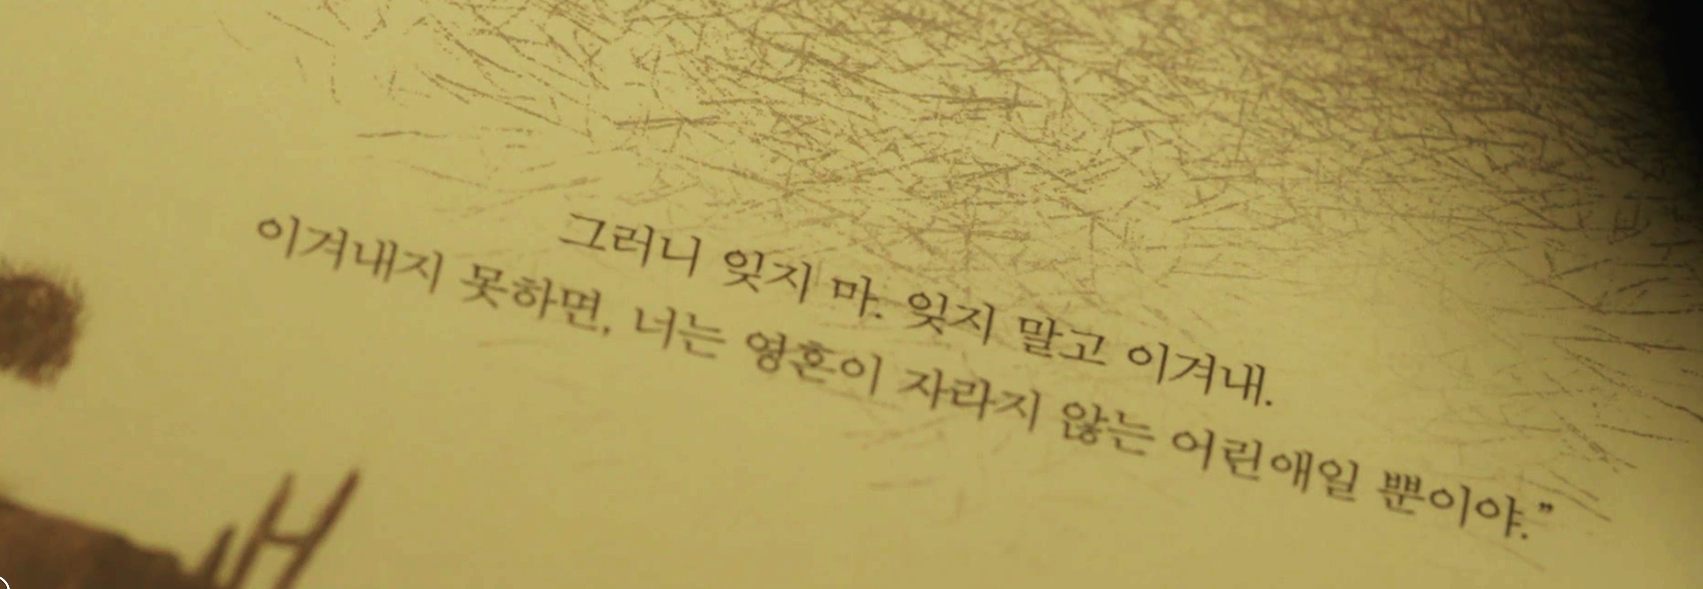 그러니 잊지 마. 잊지 말고 이겨내.
이겨내지 못하면, 너는 영혼이 자라지 않는 어린애일 뿐이야.”